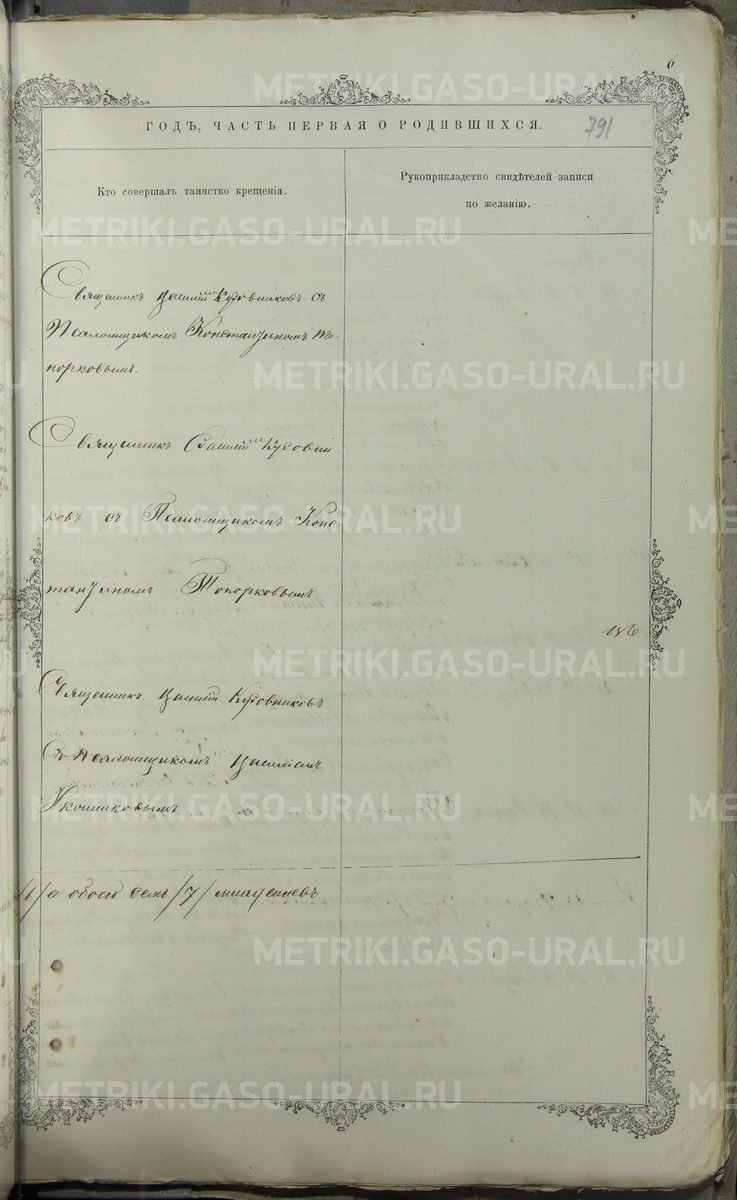 6
METRIKI.GASO-URAL.RU
ГОДЪ, ЧАСТЬ ПЕРВАЯ О РОДИВШИХСЯ.
791
Кто совершалъ таинство крещенія.
Рукоприкладство свидѣтелей записи
по желанію.
METRIKI.GASO-URAL.RU
Священникъ Василій Кудовниковъ съ
Псаломщикомъ Константиномъ То-
порковымъ.
METRIKI.GASO-URAL.RU
Священникъ Василій Кудовни-
ковъ съ Псаломщикомъ Конс
METRIKI.GASO-URAL.RU
тантиномъ Топорковымъ
METRIKI.GASO-URAL.RU
Священникъ Василій Кудовниковъ
Съ Псаломщикомъ Василіемъ
METRIKI.GASO-URAL.RU
а обоего семь /7/ младенцевъ
METRIKI.GASO-URAL.RU
METRIKI.GASO-URAL.RU